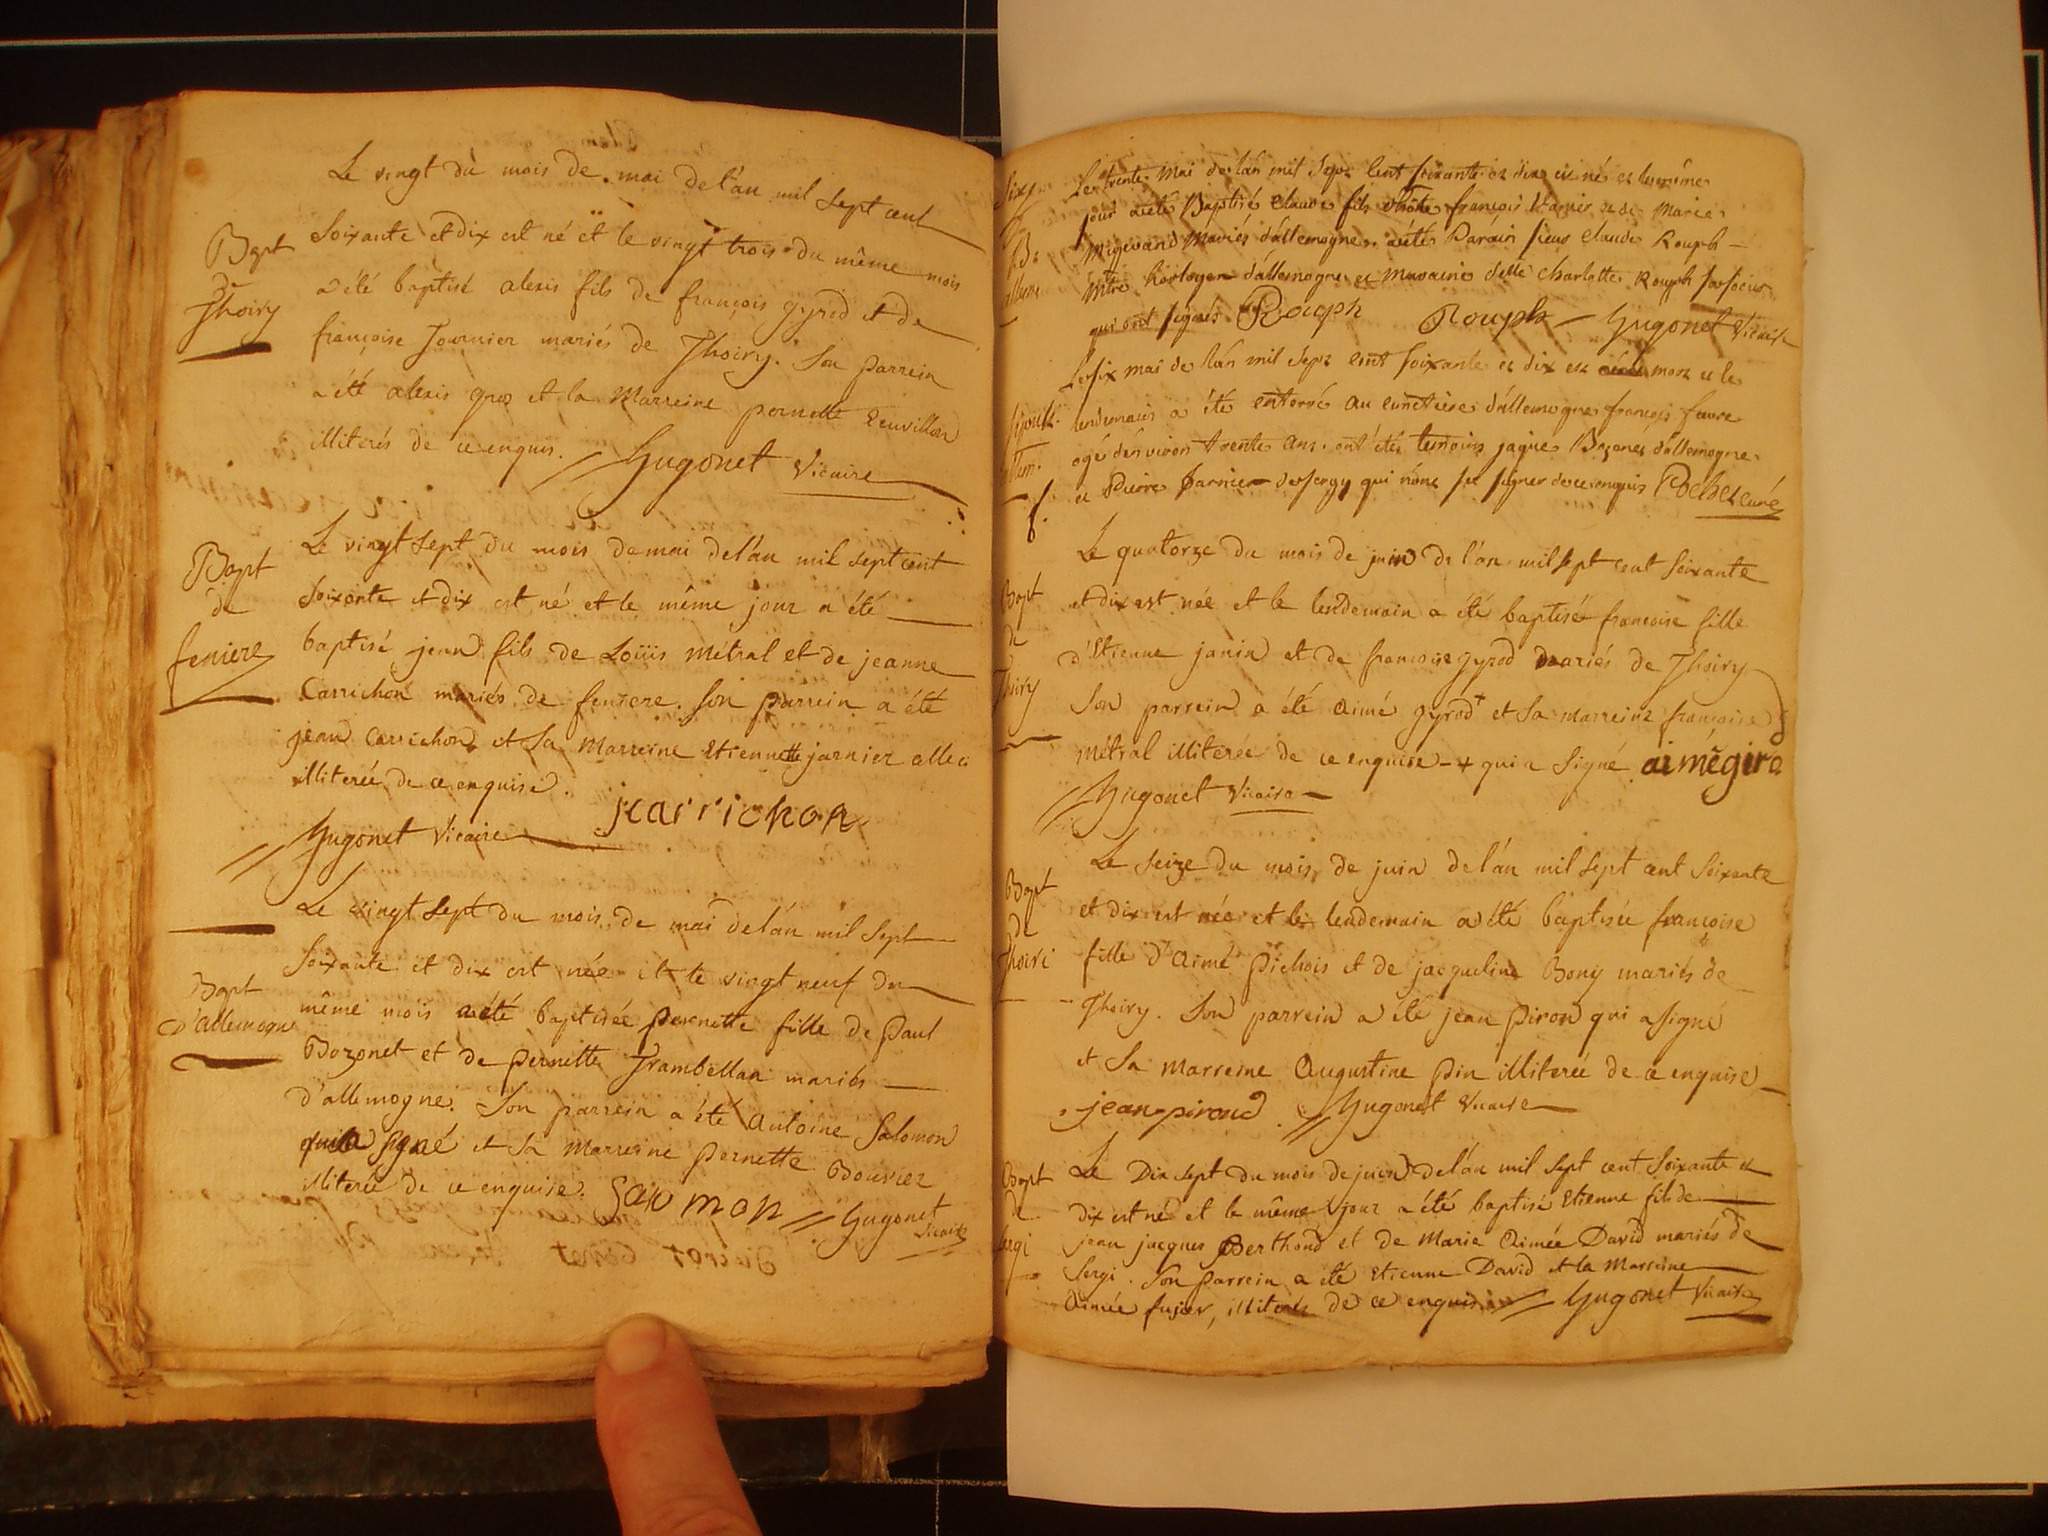 Le vingt du mois de mai de l'an mil sept cent
Bapt
de
Thoiry
soixante et dix est né et le vingt trois du même mois
a été baptisé alexis fils de françois gyrod et de
françoise fournier mariés de Thoiry. Son parrein
a été alexis gros et la Marreine pernette
illiterés de ce enquis. Hugonet Vicaire
Bapt
de
feniere
Le vingt sept du mois de mai de l'an mil sept cent
soixante et dix est né et le même jour a été
baptisé jean fils de Loüis Métral et de jeanne
Carrichon mariés de feniere. Son parrein a été
jean Carrichon et Sa Marreine Etiennette jarnier
illiterée de ce enquise. jcarrichon
Hugonet Vicaire
Bapt
D'allemogne
Le vingt sept du mois de mai de l'an mil sept
soixante et dix est née et le vingt neuf du
même mois a été baptisée pernette fille de Paul
Bozonet et de pernette Trambellan mariés
d'allemogne. Son parrein a été Antoine Salomon
qui a signé et Sa Marreine Pernette Bouvier
illiterée de ce enquise. Salomon Hugonet
Vicaire
Le trente Mai de lan mil Sept Cent soixante et dix est né et le même
jour a été Baptisé Claude fils françois et de Marie
Migevand Mariés d'allemogne. a été Parain sieur Claude Rouph
Mtre horloger d'allemogne et Maraine delle Charlotte Rouph sa soeur
qui ont signés. Rouph Rouph Hugonet Vicaire
Sépult.
allem.
Le six mai de lan mil Sept cent soixante et dix est mort et le
lendemain a été enterré au cimetiere d'allemogne françois favre
agé d'environ trente ans. ont étés temoins jaques Bozonet d'allemogne
et Pierre jarnier de sergy qui n'ont su signer de ce enquis Rochet curé
Bapt
de
Thoiry
Le quatorze du mois de juin de l'an mil sept cent soixante
et dix est née et le lendemain a été baptisé françoise fille
d'Etienne janin et de françoise gyrod mariés de Thoiry
Son parrein a été aimé gyrod + et sa marreine françoise
métral illiterée de ce enquise - + qui a signé aimégira
Hugonet Vicaire
Bapt
de
Thoiri
Le seize du mois de juin de l'an mil sept cent soixante
et dix est née et le lendemain a été baptisée françoise
fille d'aimé Pichois et de jacqueline Bony mariés de
Thoiry. Son parrein a été jean Piron qui a signé
et sa marreine Augustine Pin illiterée de ce enquise
jean piroud Hugonet Vicaire
Bapt
de
Sergi
Le Dix sept du mois de juin de l'an mil sept cent soixante et
dix est né et le même jour a été baptisé Etienne fils de
jean jacques Berthoud et de Marie Aimée David mariés de
Sergi. Son parrein a été Etienne David et la Marreine
Aimée fusier, illiterés de ce enquis Hugonet Vicaire